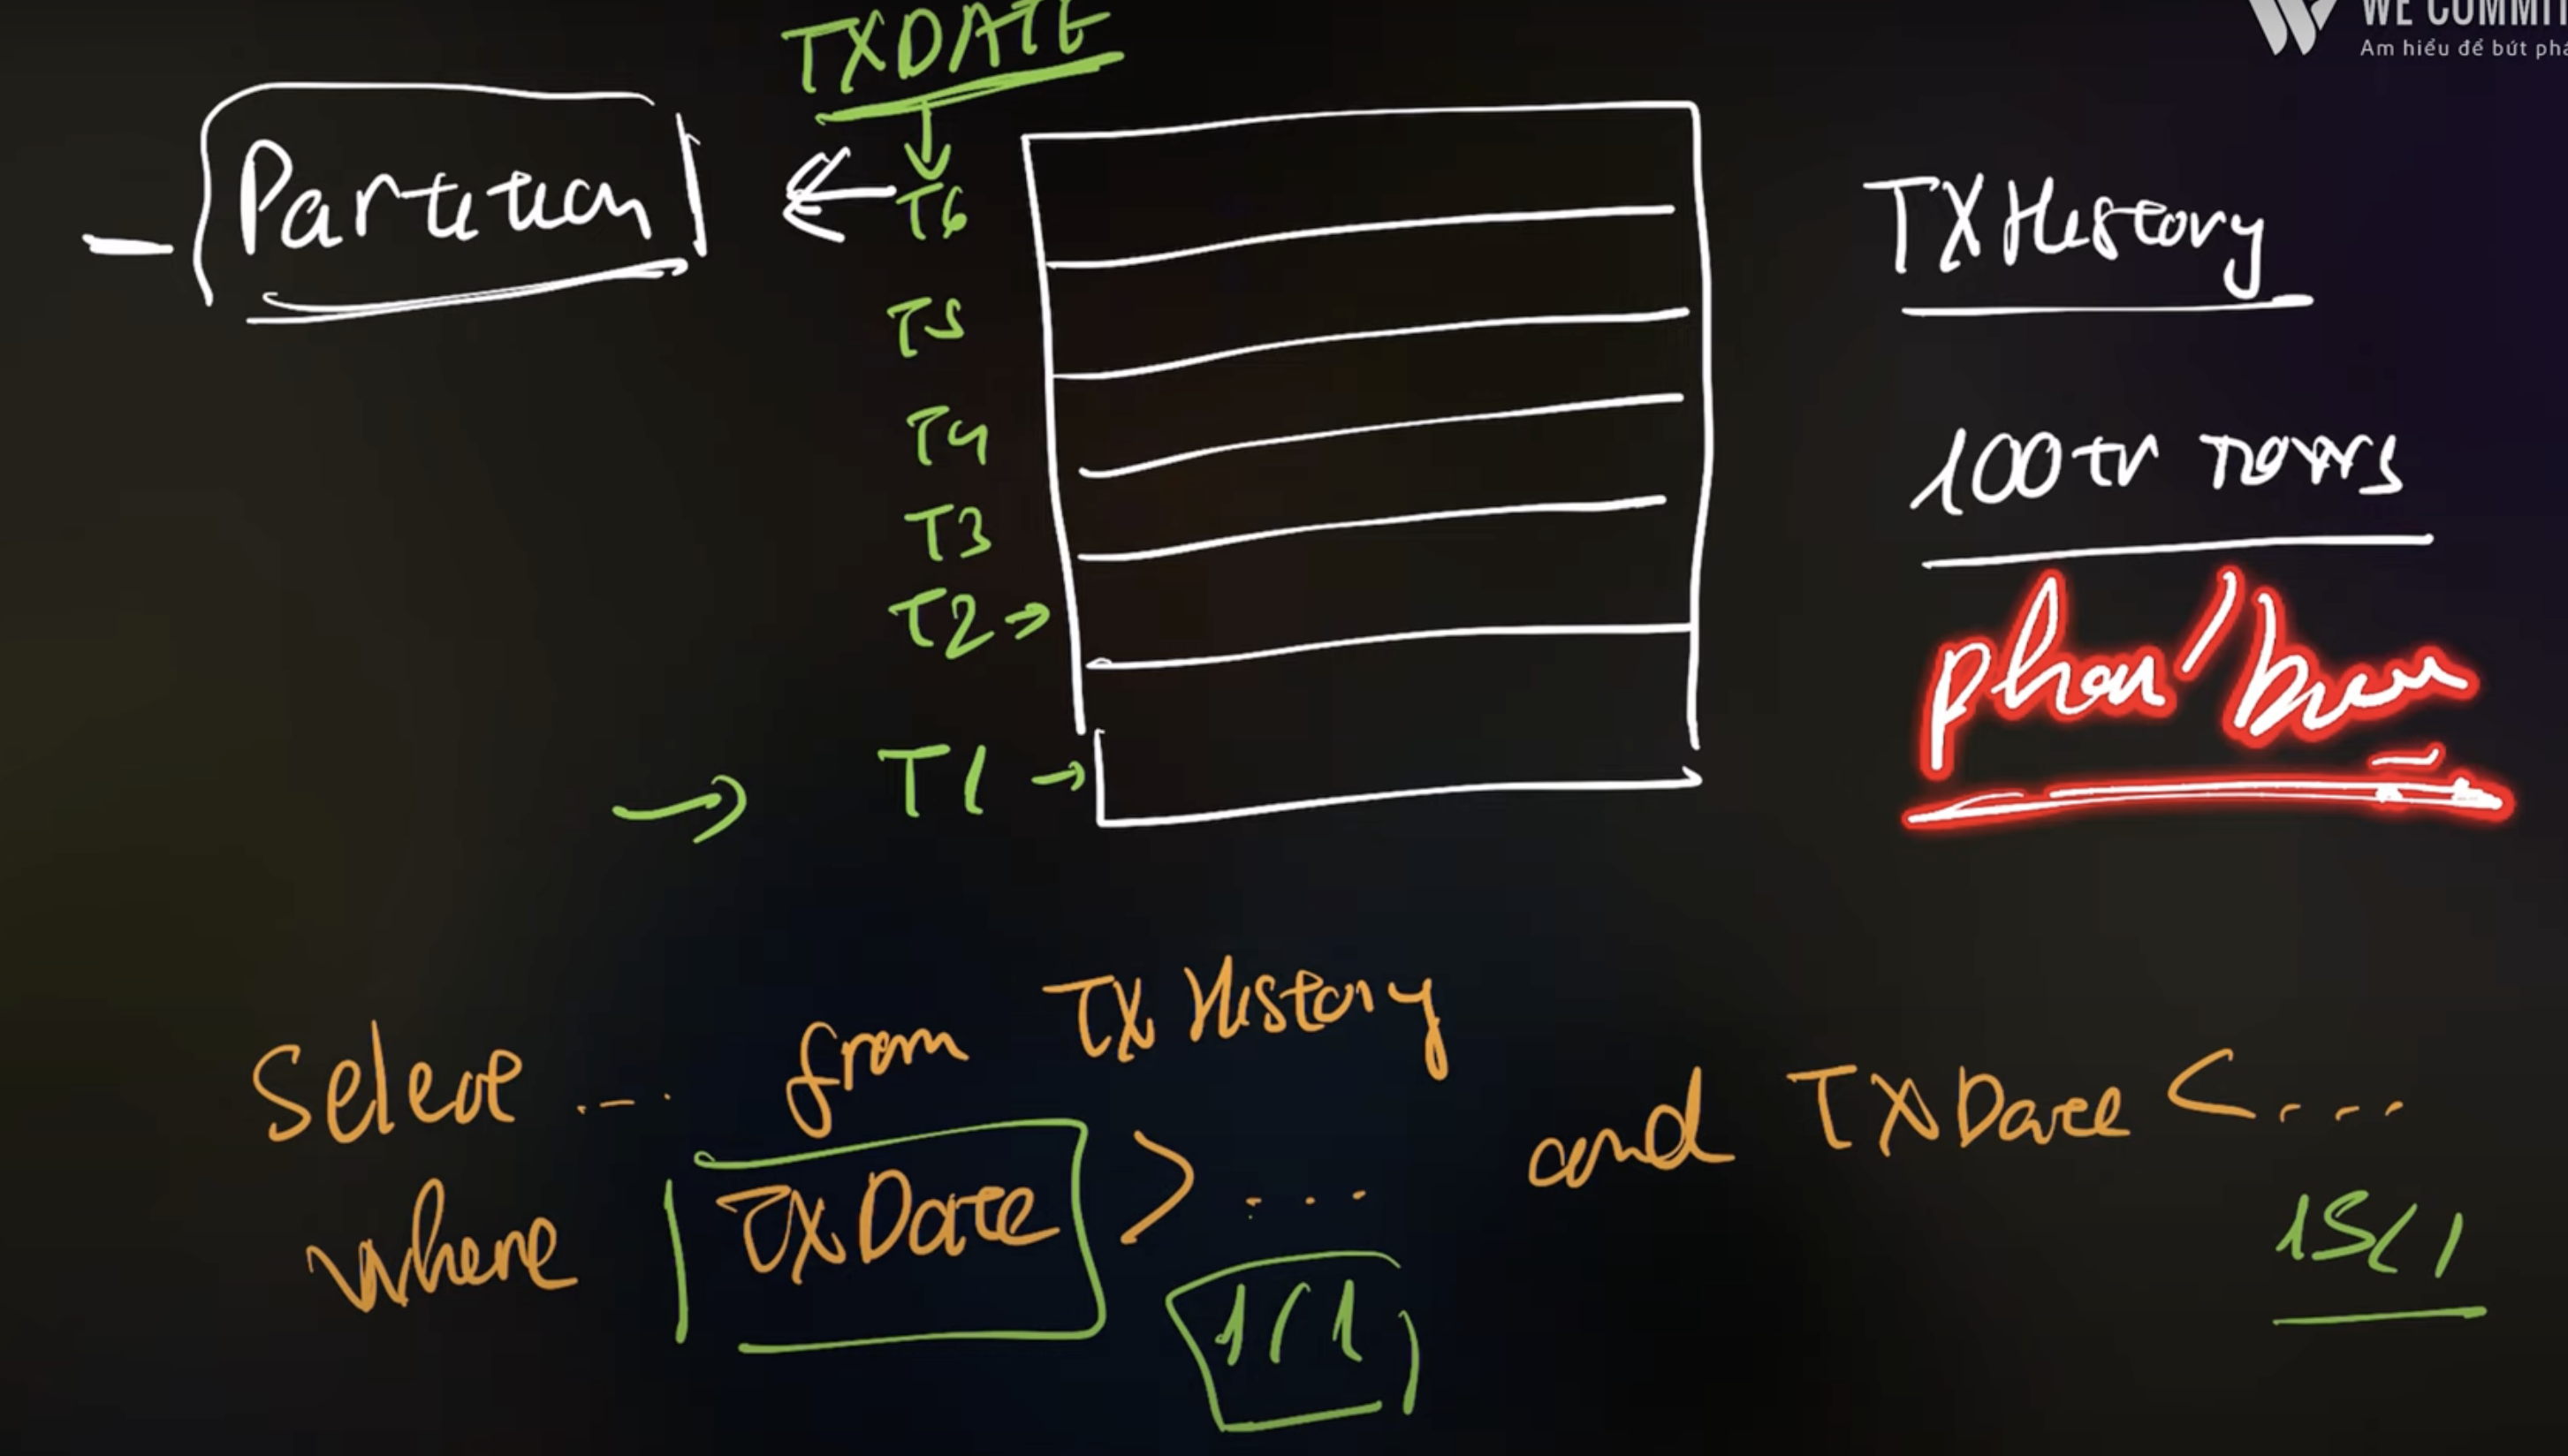 WE COMMIT
Am hiểu để bứt phá
TXDATE
Partition
T6
T5
T4
T3
T2
T1
TXHistory
100tr rows
Select ... from TXHistory
where TXDate > ... and TXDate < ...
1/1
15/1